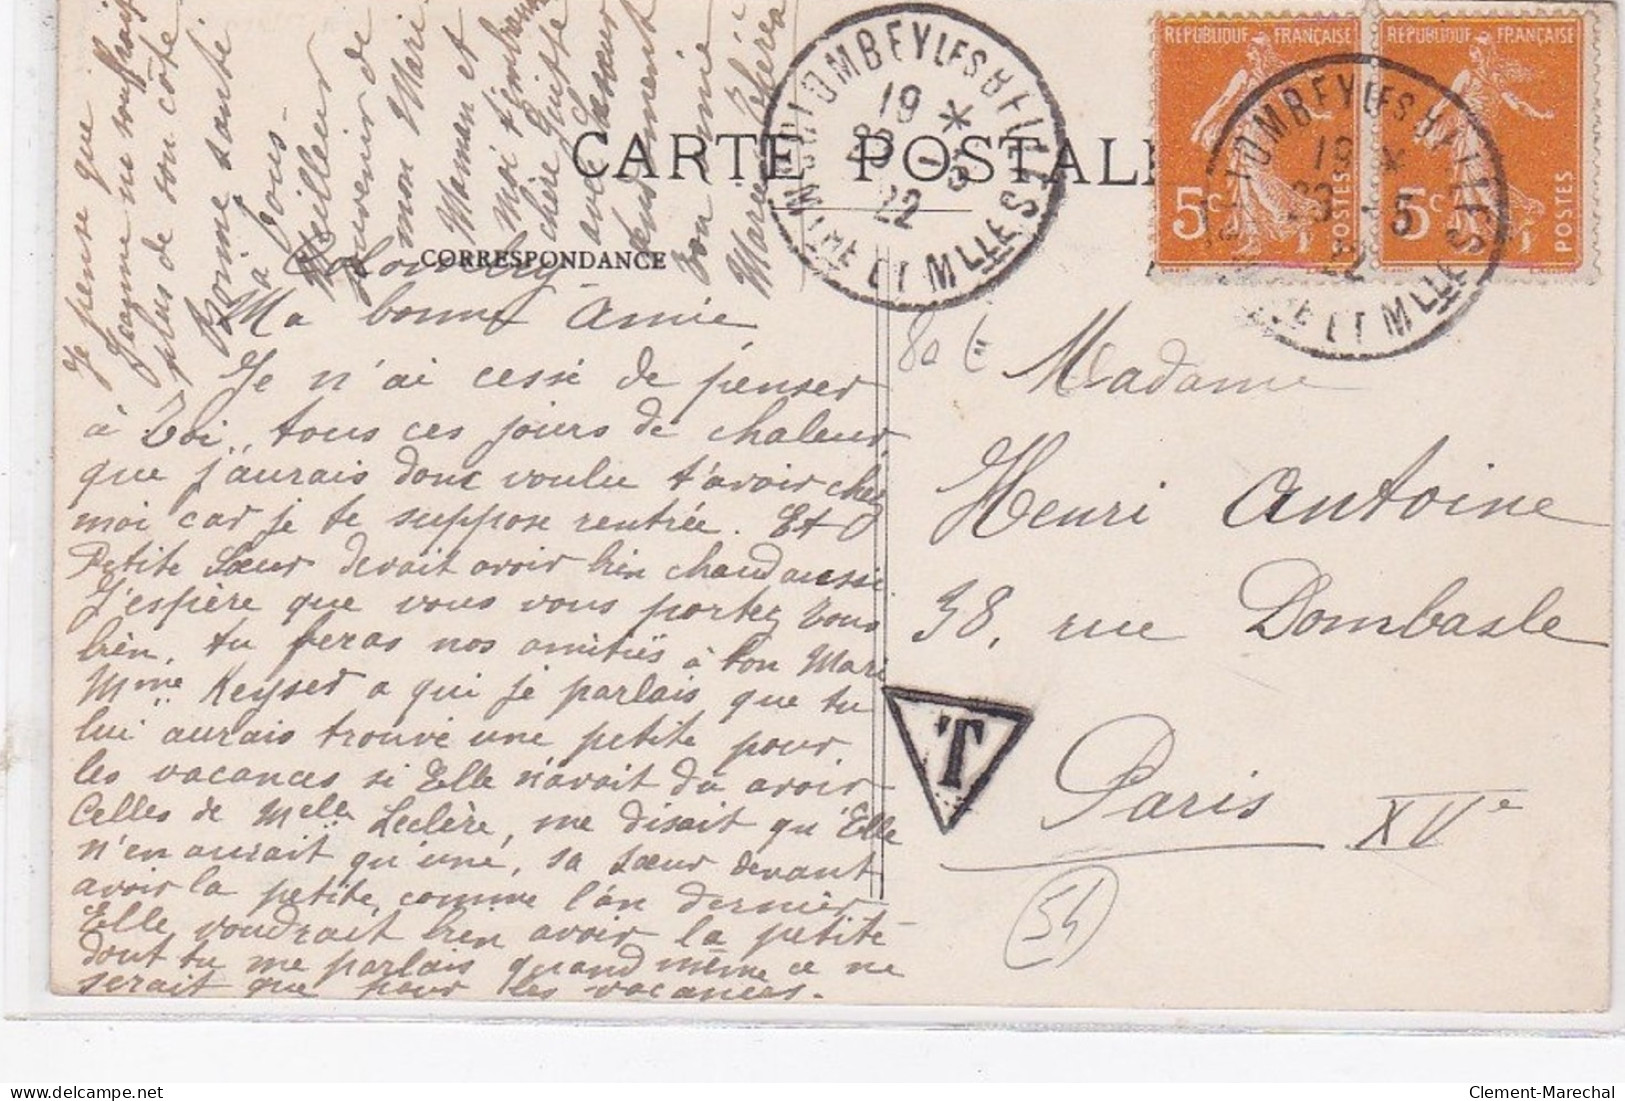 CARTE POSTALE
CORRESPONDANCE
Ma bonne Amie
Je n'ai cessé de penser
à Toi, tous ces jours de chaleur
que j'aurais donc voulu t'avoir chez
moi car je te suppose rentrée. Et
Petite Sœur devait avoir bien chaud aussi.
J'espère que vous vous portez tous
bien, tu feras nos amitiés à ton Mari
Mme Keyser a qui je parlais que tu
lui aurais trouvé une petite pour
les vacances si Elle n'avait dû avoir
Celles de Melle Leclère, me disait qu'Elle
n'en aurait qu'une, sa sœur devant
avoir la petite, comme l'an dernier
Elle voudrait bien avoir la petite
dont tu me parlais quand même ce ne
serait que pour les vacances.
Je pense que
Jeanne ne souffrait
plus de son côté
Bonne santé
à Vous
Meilleur
souvenir de
mon Mari
Maman et
moi t'embrasse
chère
avec Ta sœur
tendrement
Ton amie
Marie
COLOMBEY LES BELLES
19 *
22
MTHE ET MLLE
REPUBLIQUE FRANÇAISE
5c
POSTES
REPUBLIQUE FRANÇAISE
5c
POSTES
COLOMBEY LES BELLES
19 *
22
MTHE ET MLLE
80 c
Madame
Henri Antoine
38, rue Dombasle
Paris XVe
T
54
Clement-Marechal